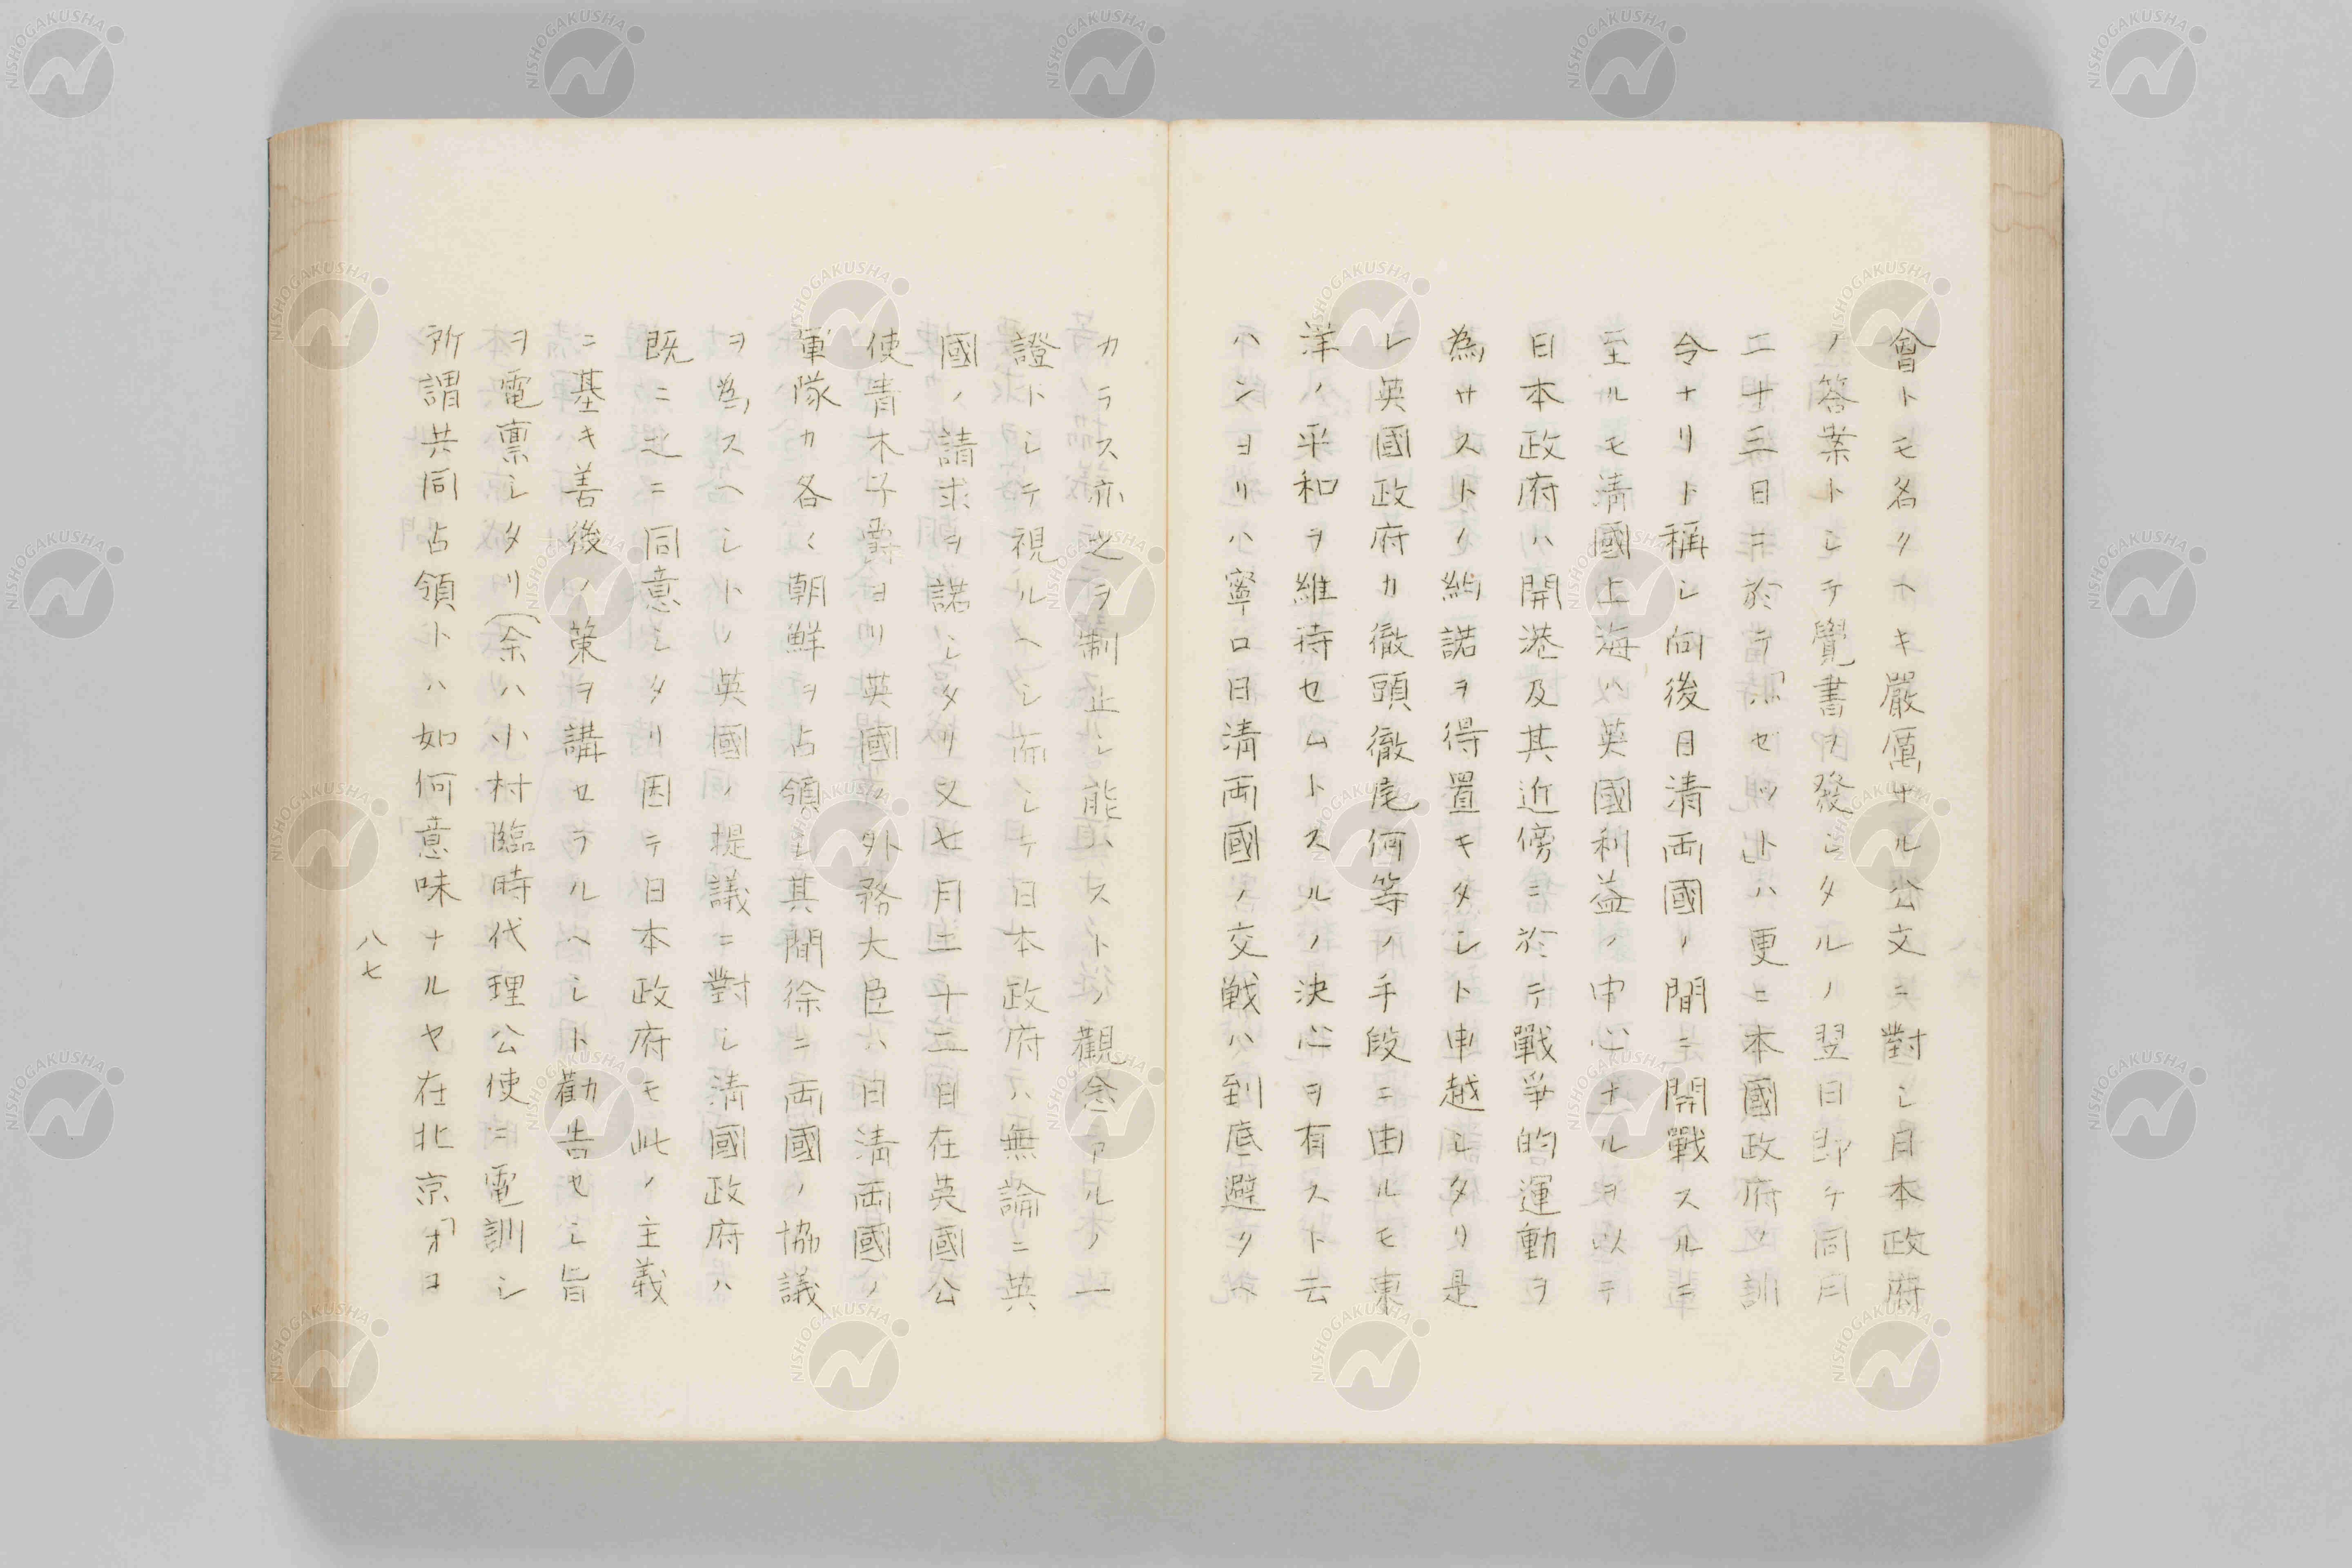 會トモ名クヘキ嚴厲ナル公文ニ對シ日本政府
ノ答案トシテ覺書ヲ發シタルノ翌日即チ同月
二十三日ニ於テ「パセット」ハ更ニ本國政府ノ訓
令ナリト稱シ向後日清両國ノ間ニ開戰スルニ
至ルモ清國上海ハ英國利益ノ中心ナルヲ以テ
日本政府ハ開港及其近傍ニ於テ戰爭的運動ヲ
為サストノ約諾ヲ得置キタシト申越シタリ是
レ英國政府カ徹頭徹尾何等ノ手段ニ由ルモ東
洋ノ平和ヲ維持セムトスルノ決心ヲ有スト云
ハンヨリハ寧ロ日清両國ノ交戦ハ到底避クヘ
カラス亦之ヲ制止シ能ハストノ觀念アルノ一
證トシテ視ルヘシ而シテ日本政府ハ無論ニ英
國ノ請求ヲ諾シタリ又七月二十二日在英國公
使青木子爵ヨリ英國外務大臣ハ日清両國ノ
軍隊カ各〻朝鮮ヲ占領シ其間徐ニ両國ノ協議
ヲ為スヘシトノ英國ノ提議ニ對シ清國政府ハ
既ニ之ニ同意シタリ因テ日本政府モ此ノ主義
ニ基キ善後ノ策ヲ講セラルヘシト勸告セシ旨
ヲ電禀シタリ(余ハ小村臨時代理公使ニ電訓シ
所謂共同占領トハ如何意味ナルヤ在北京「オコ
八七
NISHOGAKUSHA